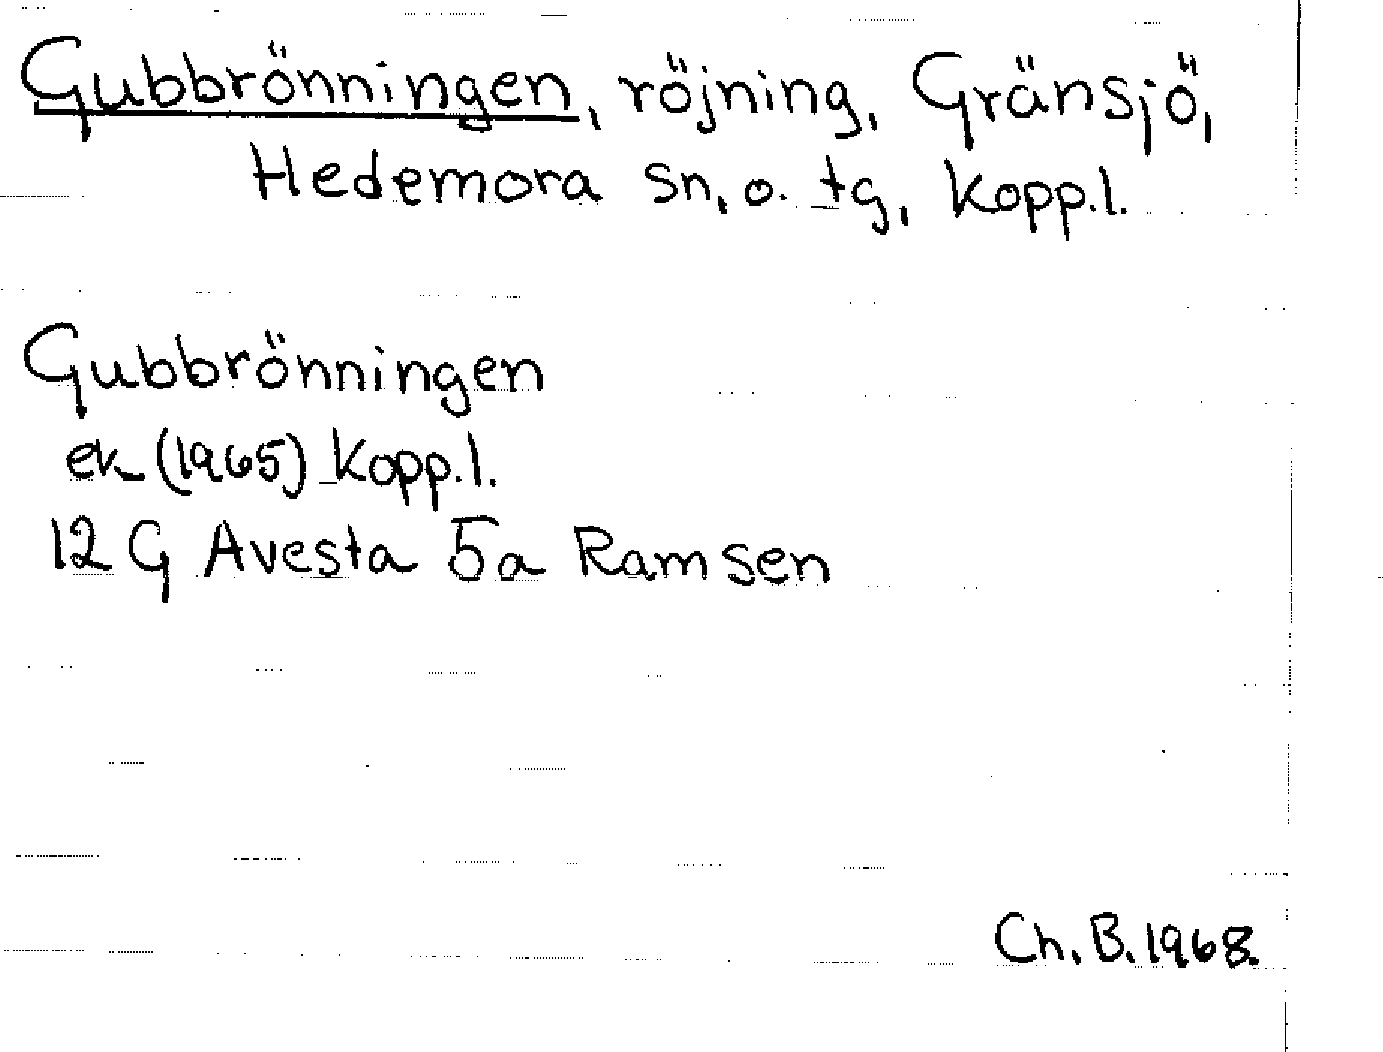 Gubbrönningen, röjning, Gränsjö,
Hedemora sn, o. tg, Kopp.l.
Gubbrönningen
ek (1965) Kopp.l.
12 G Avesta 5a Ramsen
Ch. B. 1968.